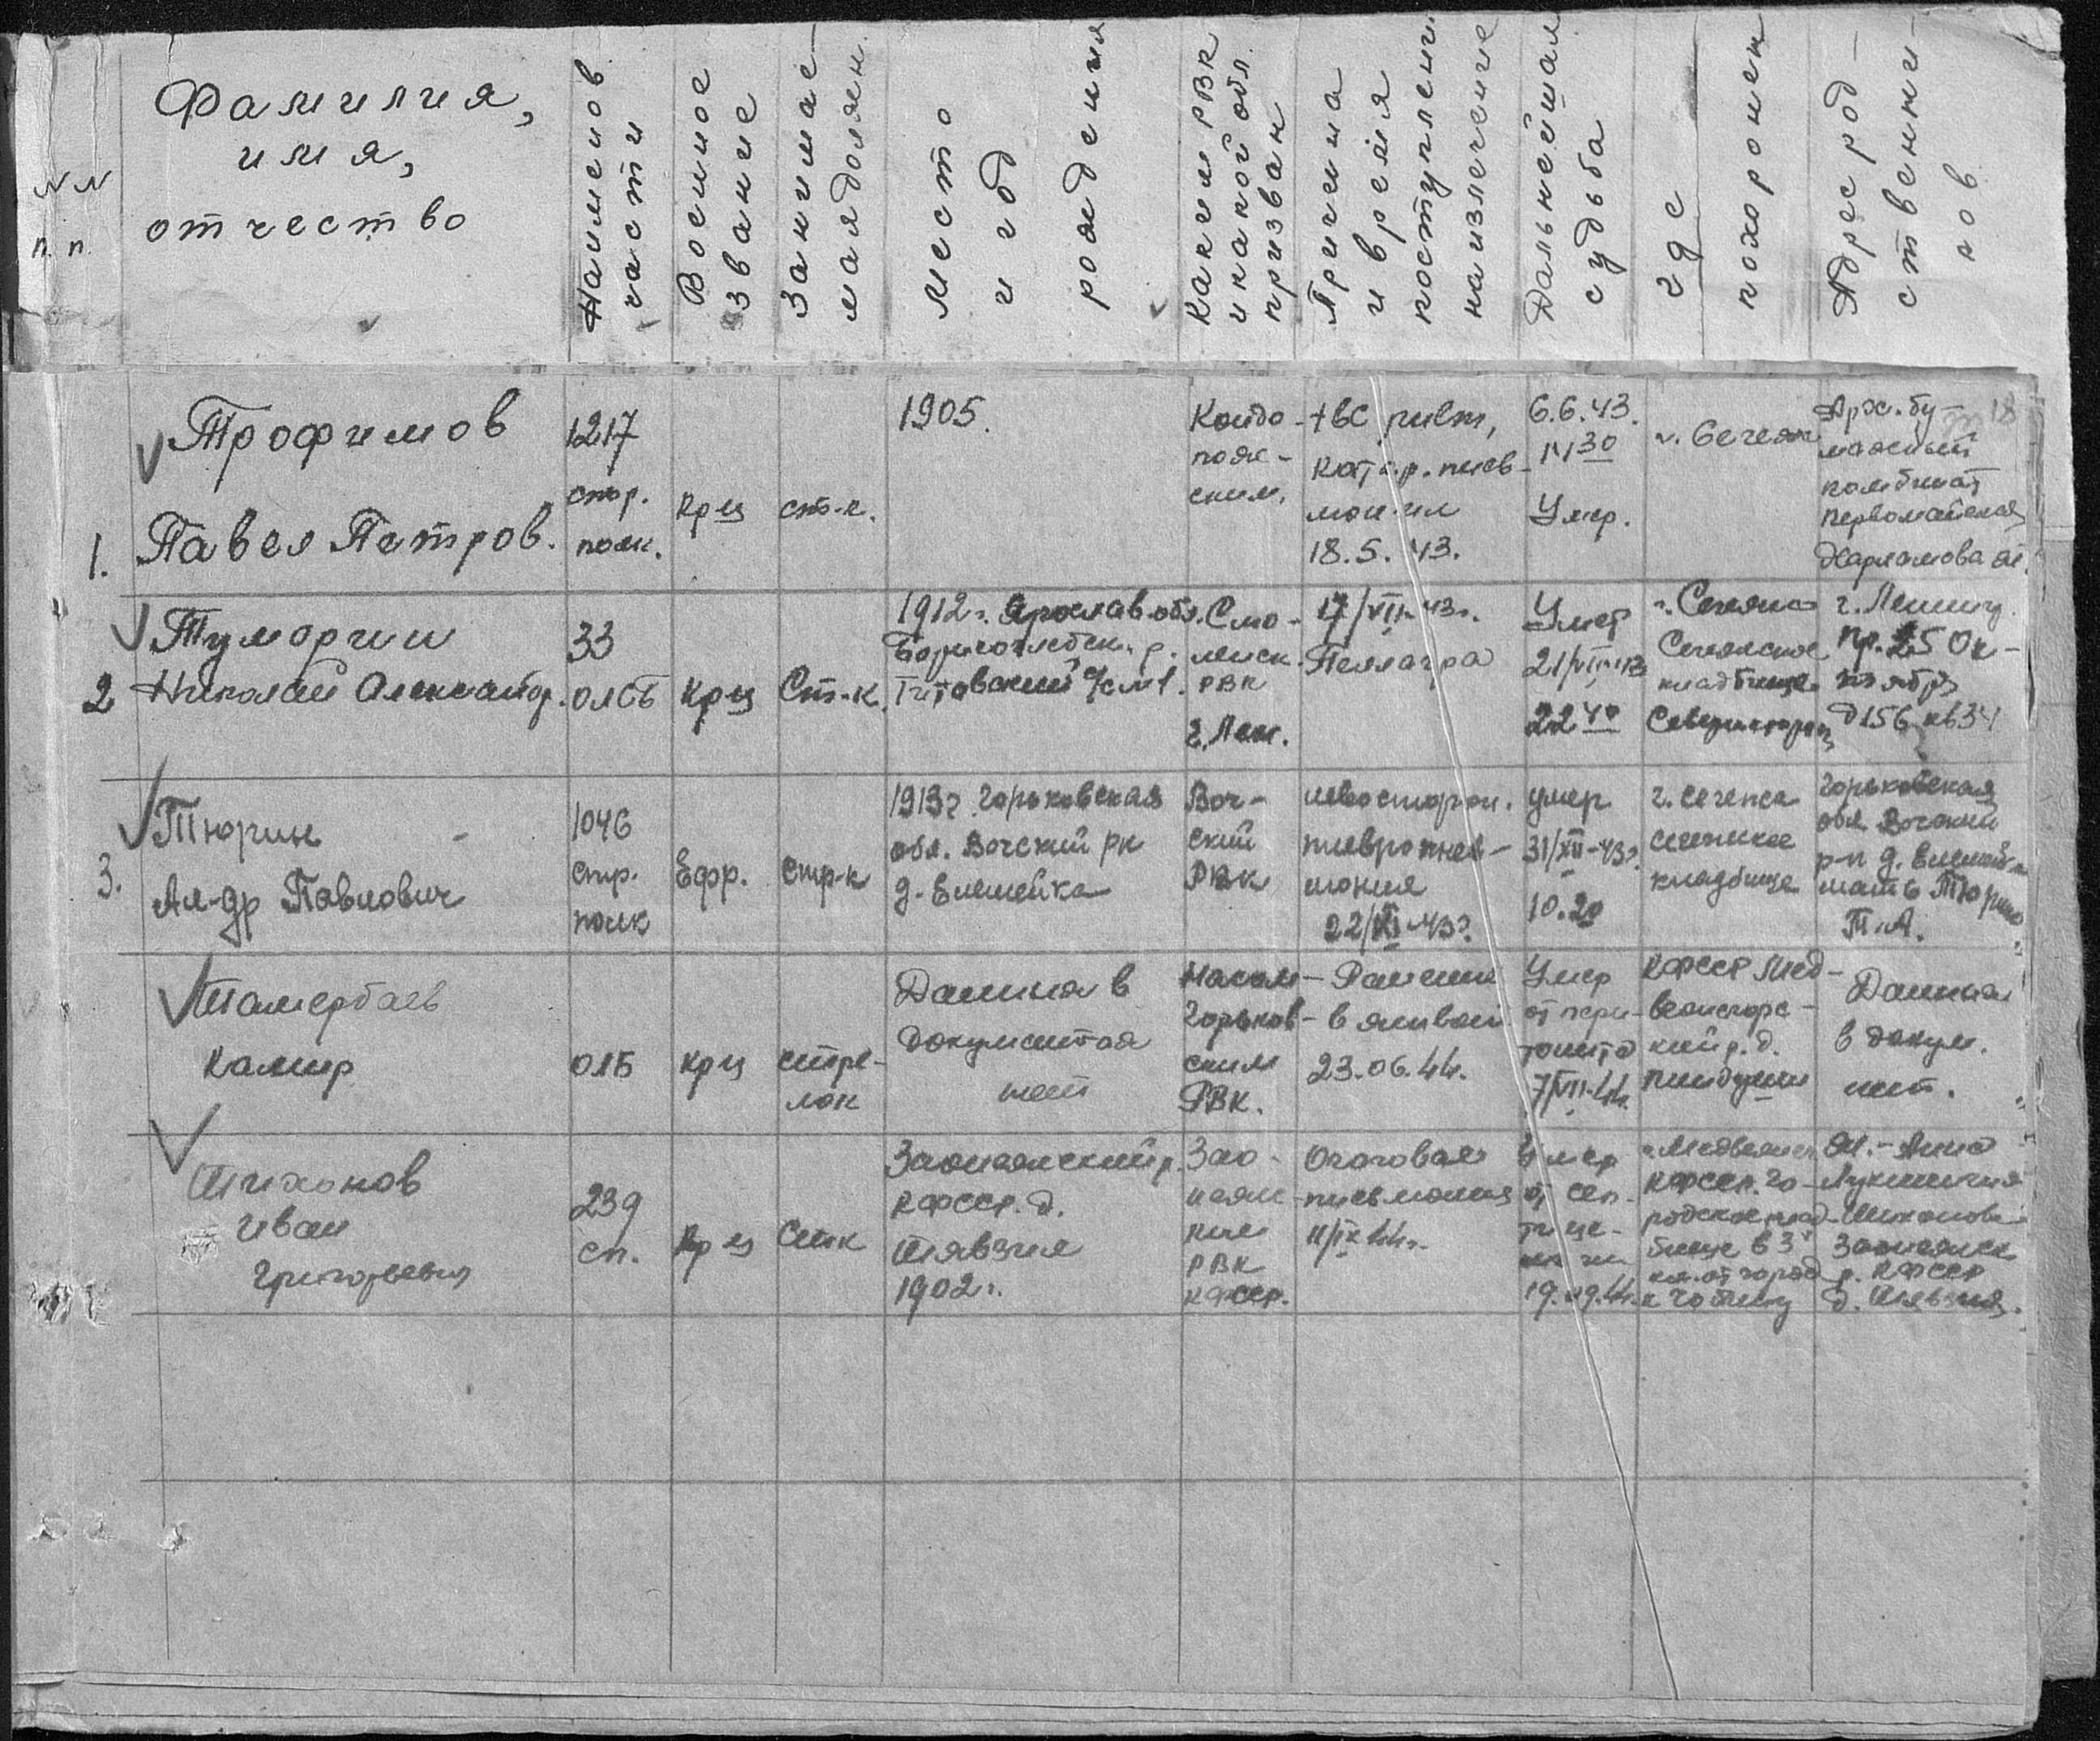 NN
п. п.
Фамилия,
имя,
отчество
Наименов
части
Военное
звание
Занимае-
мая должн.
Место
и год
рождения
Каким РВК
и какой обл.
призван
Причина
и время
поступлени
на излечение
Дальнейшая
судьба
где
похоронен
Адрес род-
ственни-
ков
18
1.
Трофимов
Павел Петров.
1217
стр.
полк.
Крц
ст-к.
1905.
Кондо-
пож-
ским.
твс
Катар. пнев-
монии
18.5.43.
6.6.43.
30
Умер.
г. Сегежа
Арх. бу-
мажный
комбинат
Первомайская
Харламова
2
Туморгин
Николай Александр.
33
ОЛСБ
Крц
Ст-к.
1912 г. Ярослав. обл.
Борисоглебск. р.
Титовский с/сов.
Смо-
линск.
РВК
г. Лен.
17/VII-43г.
Пеллагра
Умер
21/VII-43
22 40
г. Сегежа
Сегежское
кладбище
г. Ленинг.
Пр. 25 Ок-
тября
д 156 кв 34
3.
Тюрин
Ал-др Павлович
1046
Стр.
полк
Ефр.
Стр-к
1913г. Горьковская
обл. Вачский рн
д. Елтейка
Вач-
ский
РВК
левосторон.
плевропнев-
мония
22/XI-43г.
умер
31/XII-43г.
10.20
г. Сегежа
сегежское
кладбище
Горьковская
обл Вачский
р-н д.
мать Тюрина
Т.А.
Тамербаев
Камир
ОЛБ
крц
стре-
лок
Данных в
документах
нет
Горьков-
ским
РВК.
Ранение
в живот
23.06.44.
Умер
от пери-
тонита
7/VII-44.
КФССР Мед-
вежьегорс-
кий р. д.
Пиндуши
Данных
в докум.
нет.
Тихонов
Иван
Григорьевич
239
сп.
Крц
Стк
Заонежский р.
КФССР. д.
Тявзия
1902 г.
Зао-
неж-
ким
РВК
КФССР.
Очаговая
пневмония
11/IX 44г.
Умер
от сеп-
тице-
мии
19.09.44.
г. Медвежьег
КФССР. Го-
родское клад-
бище в 3
км. от города
к Чотину
Ж.- Анна
Лукинична
Тихонова
Заонежск
р. КФССР
д. Тявзия.